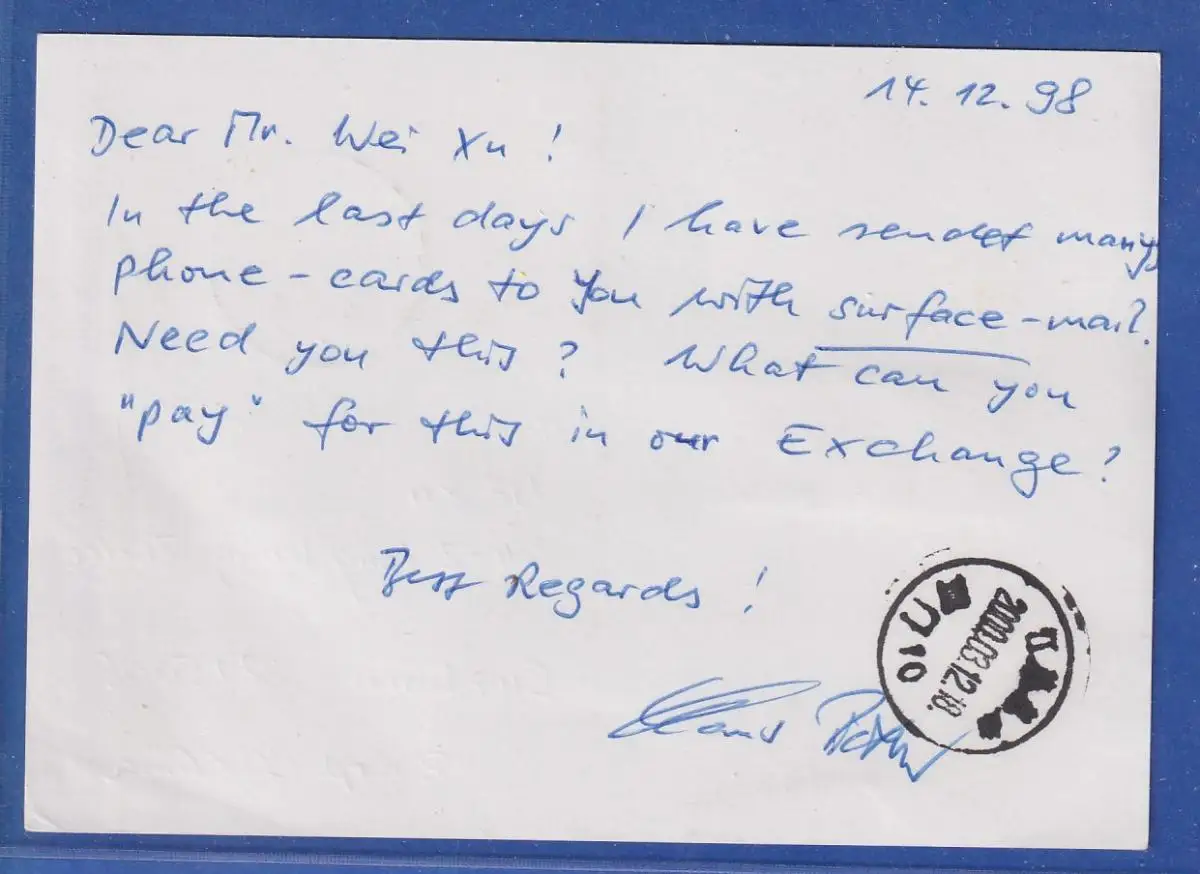 14. 12. 98
Dear Mr. Wei Xu !
In the last days I have sendet many
phone-cards to you with surface-mail.
Need you this ? What can you
"pay" for this in our Exchange ?
Best Regards !
2000.03.12.18.
10